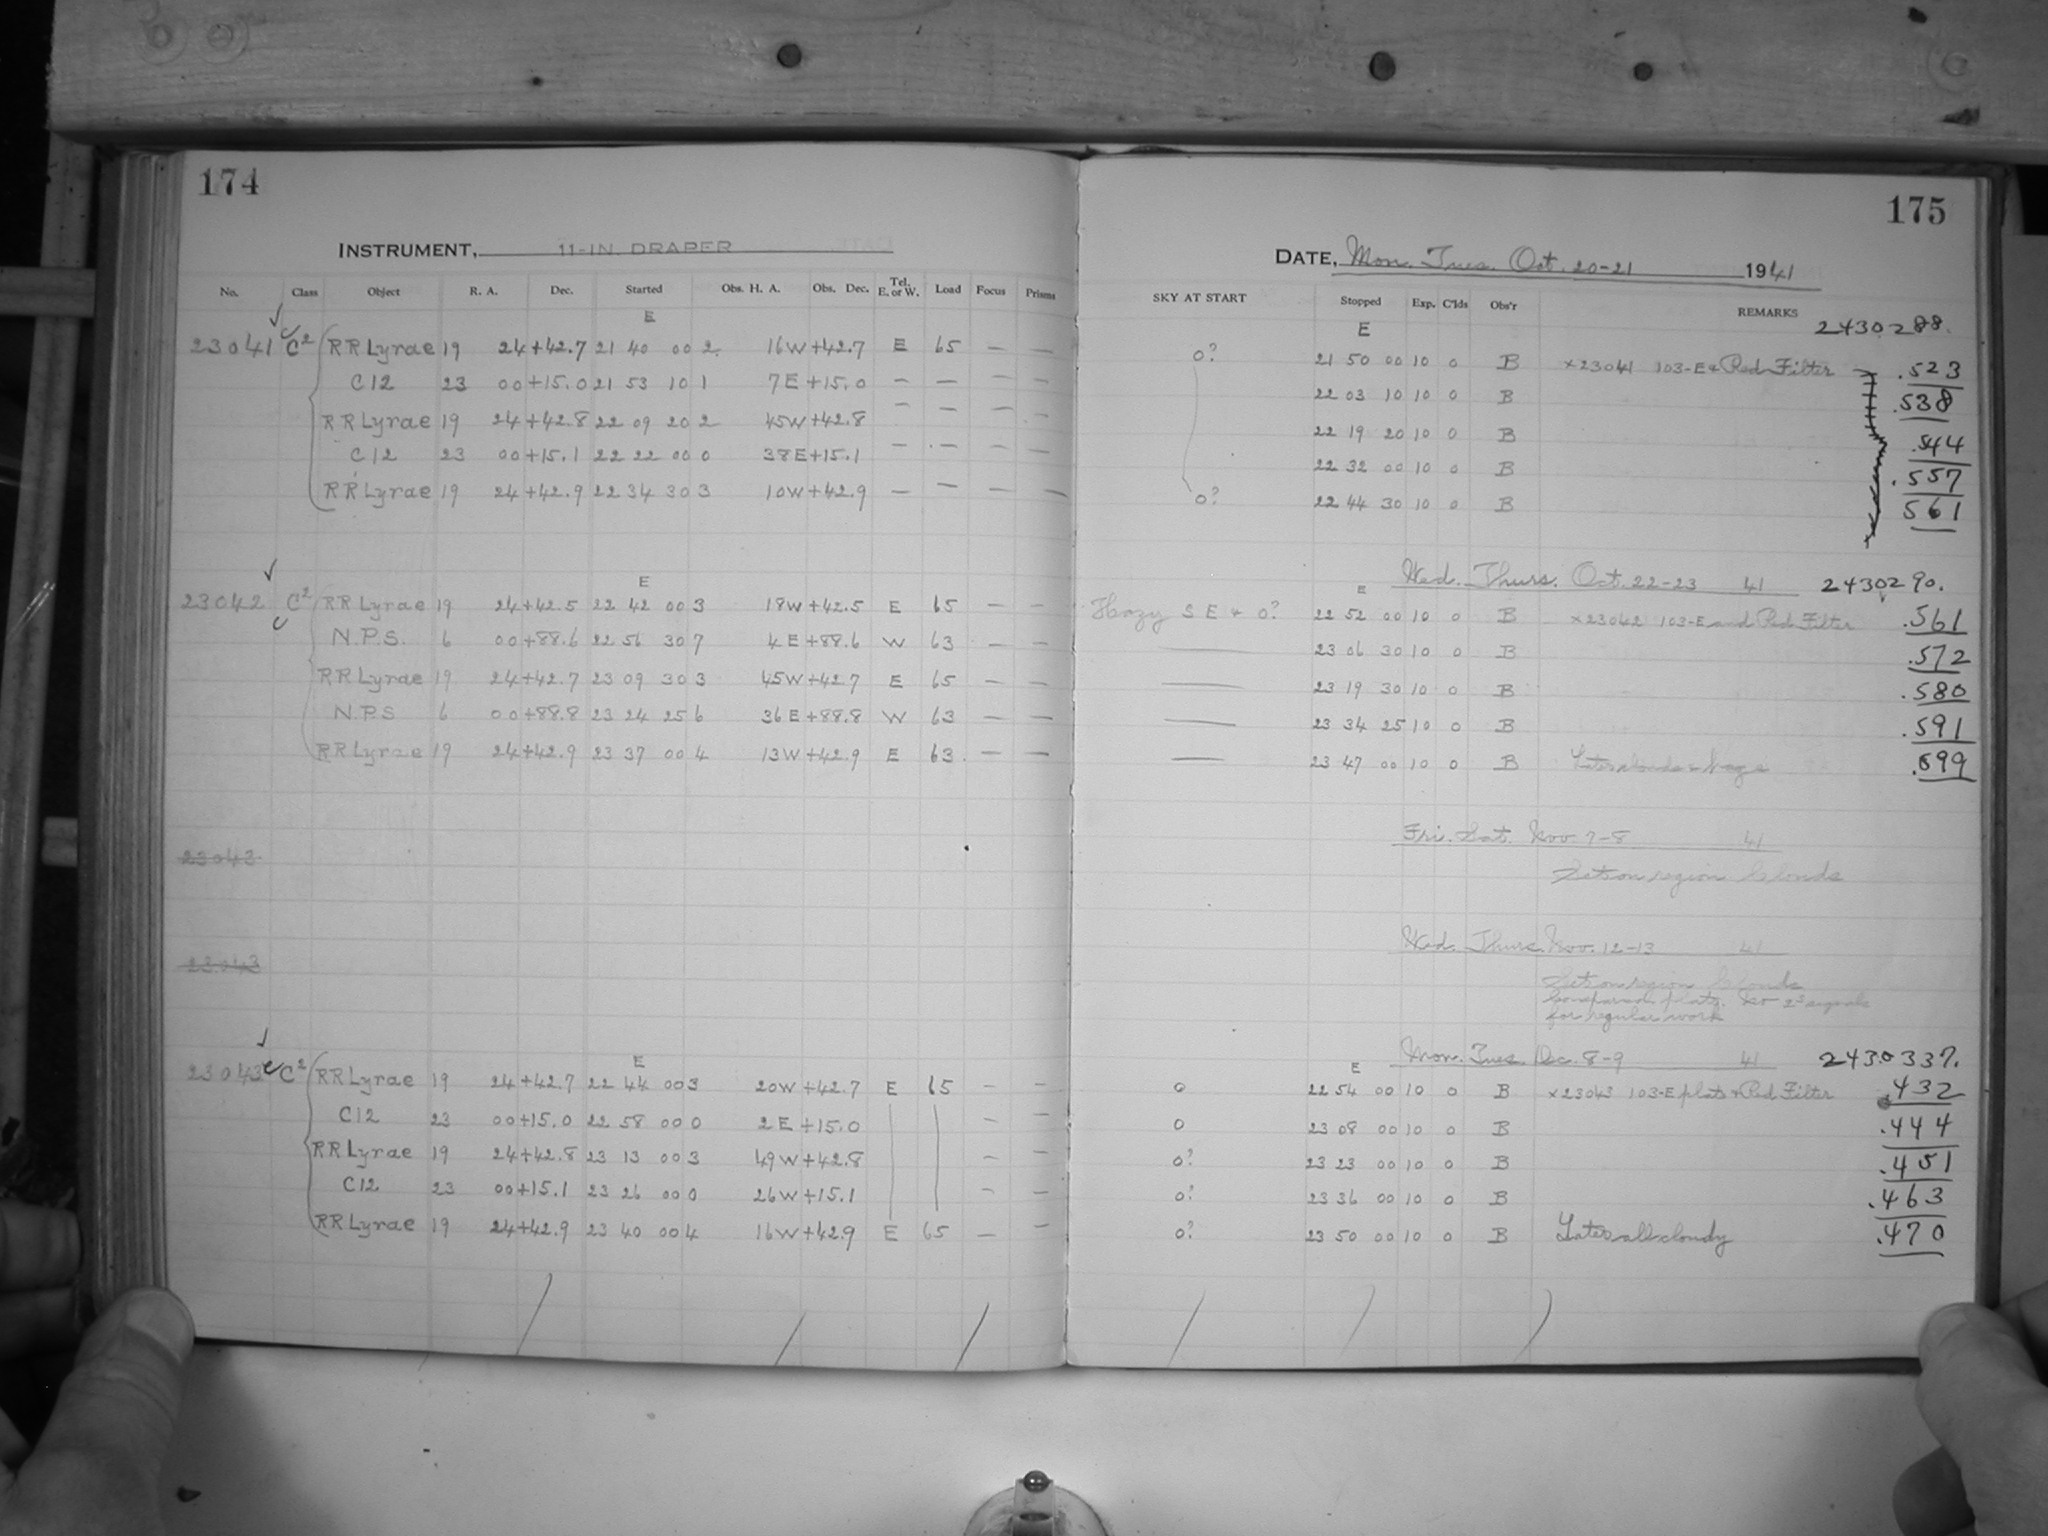 174
INSTRUMENT, 11-IN. DRAPER
No. Class Object R. A. Dec. Started Obs. H. A. Obs. Dec. Tel. E. or W. Load Focus Prisms
E
23041 C2 RR Lyrae 19 24 +42.7 21 40 00 2 16W +42.7 E 65 — —
C12 23 00 +15.0 21 53 10 1 7E +15.0 — — — —
RR Lyrae 19 24 +42.8 22 09 20 2 45W +42.8 — — — —
C12 23 00 +15.1 22 22 00 0 38E +15.1 — — — —
RR Lyrae 19 24 +42.9 22 34 30 3 10W +42.9 — — — —
E
23042 C2 RR Lyrae 19 24 +42.5 22 42 00 3 18W +42.5 E 65 — —
N.P.S. 6 00 +88.6 22 56 30 7 4E +88.6 W 63 — —
RR Lyrae 19 24 +42.7 23 09 30 3 45W +42.7 E 65 — —
N.P.S 6 00 +88.8 23 24 25 6 36E +88.8 W 63 — —
RR Lyrae 19 24 +42.9 23 37 00 4 13W +42.9 E 63 — —
23043
23043
E
23043 C2 RR Lyrae 19 24 +42.7 22 44 00 3 20W +42.7 E 65 — —
C12 23 00 +15.0 22 58 00 0 2E +15.0 — —
RR Lyrae 19 24 +42.8 23 13 00 3 49W +42.8 — —
C12 23 00 +15.1 23 26 00 0 26W +15.1 — —
RR Lyrae 19 24 +42.9 23 40 00 4 16W +42.9 E 65 — —
175
DATE, Mon. Tues. Oct. 20-21 1941
SKY AT START Stopped Exp. C'lds Obs'r REMARKS
E 2430288.
0? 21 50 00 10 0 B ×23041 103-E & Red Filter .523
22 03 10 10 0 B .538
22 19 20 10 0 B .544
22 32 00 10 0 B .557
0? 22 44 30 10 0 B 561
E Wed. Thurs. Oct. 22-23 41 2430290.
Hazy S E & 0? 22 52 00 10 0 B ×23042 103-E and Red Filter .561
— 23 06 30 10 0 B .572
— 23 19 30 10 0 B .580
— 23 34 25 10 0 B .591
— 23 47 00 10 0 B Later clouds & haze .599
Fri. Sat. Nov. 7-8 41
Set on region Clouds
Wed. Thurs. Nov. 12-13 41
Set on region Clouds
plate. No 2s signals
for regular work
E Mon. Tues. Dec. 8-9 41 2430337.
0 22 54 00 10 0 B ×23043 103-E plate & Red Filter .432
0 23 08 00 10 0 B .444
0? 23 23 00 10 0 B .451
0? 23 36 00 10 0 B .463
0? 23 50 00 10 0 B Later all cloudy .470